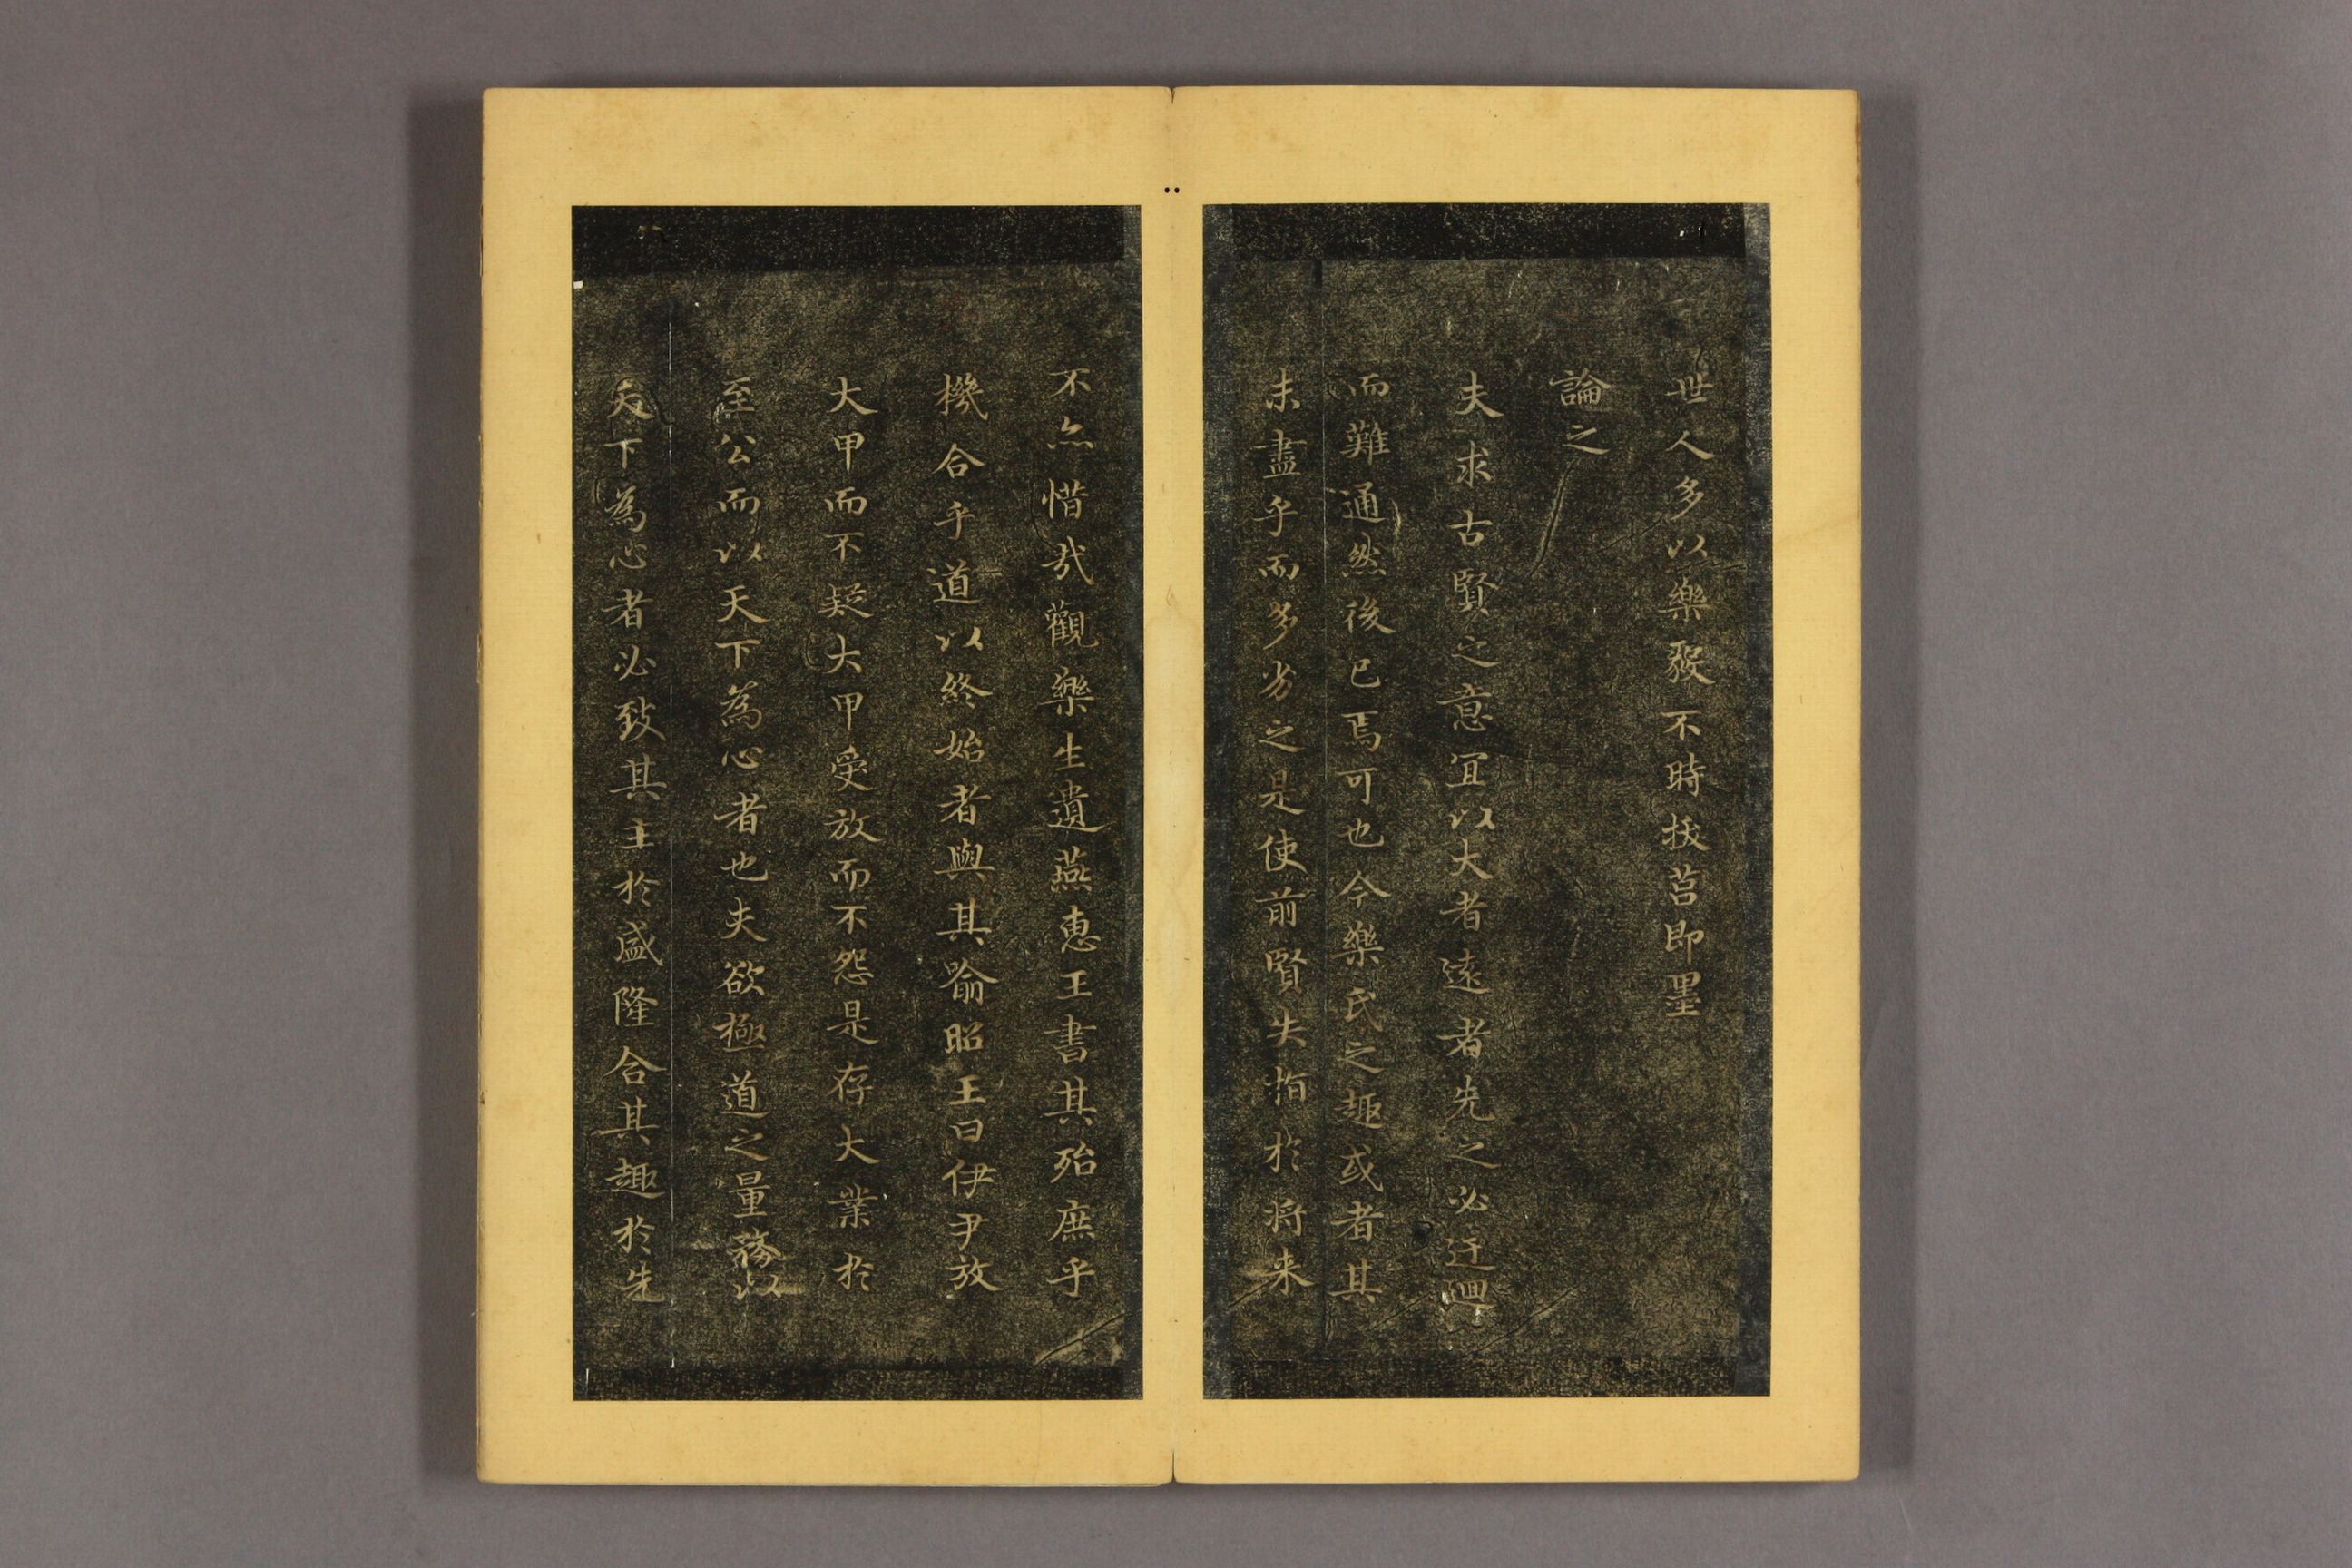 世人多以樂毅不時拔莒即墨
論之
夫求古賢之意宜以大者遠者先之必迂迴
而難通然後已焉可也今樂氏之趣或者其
未盡乎而多劣之是使前賢失指於将来
不亦惜哉觀樂生遺燕惠王書其殆庶乎
機合乎道以終始者與其喻昭王曰伊尹放
大甲而不疑大甲受放而不怨是存大業於
至公而以天下為心者也夫欲極道之量務以
天下為心者必致其主於盛隆合其趣於先